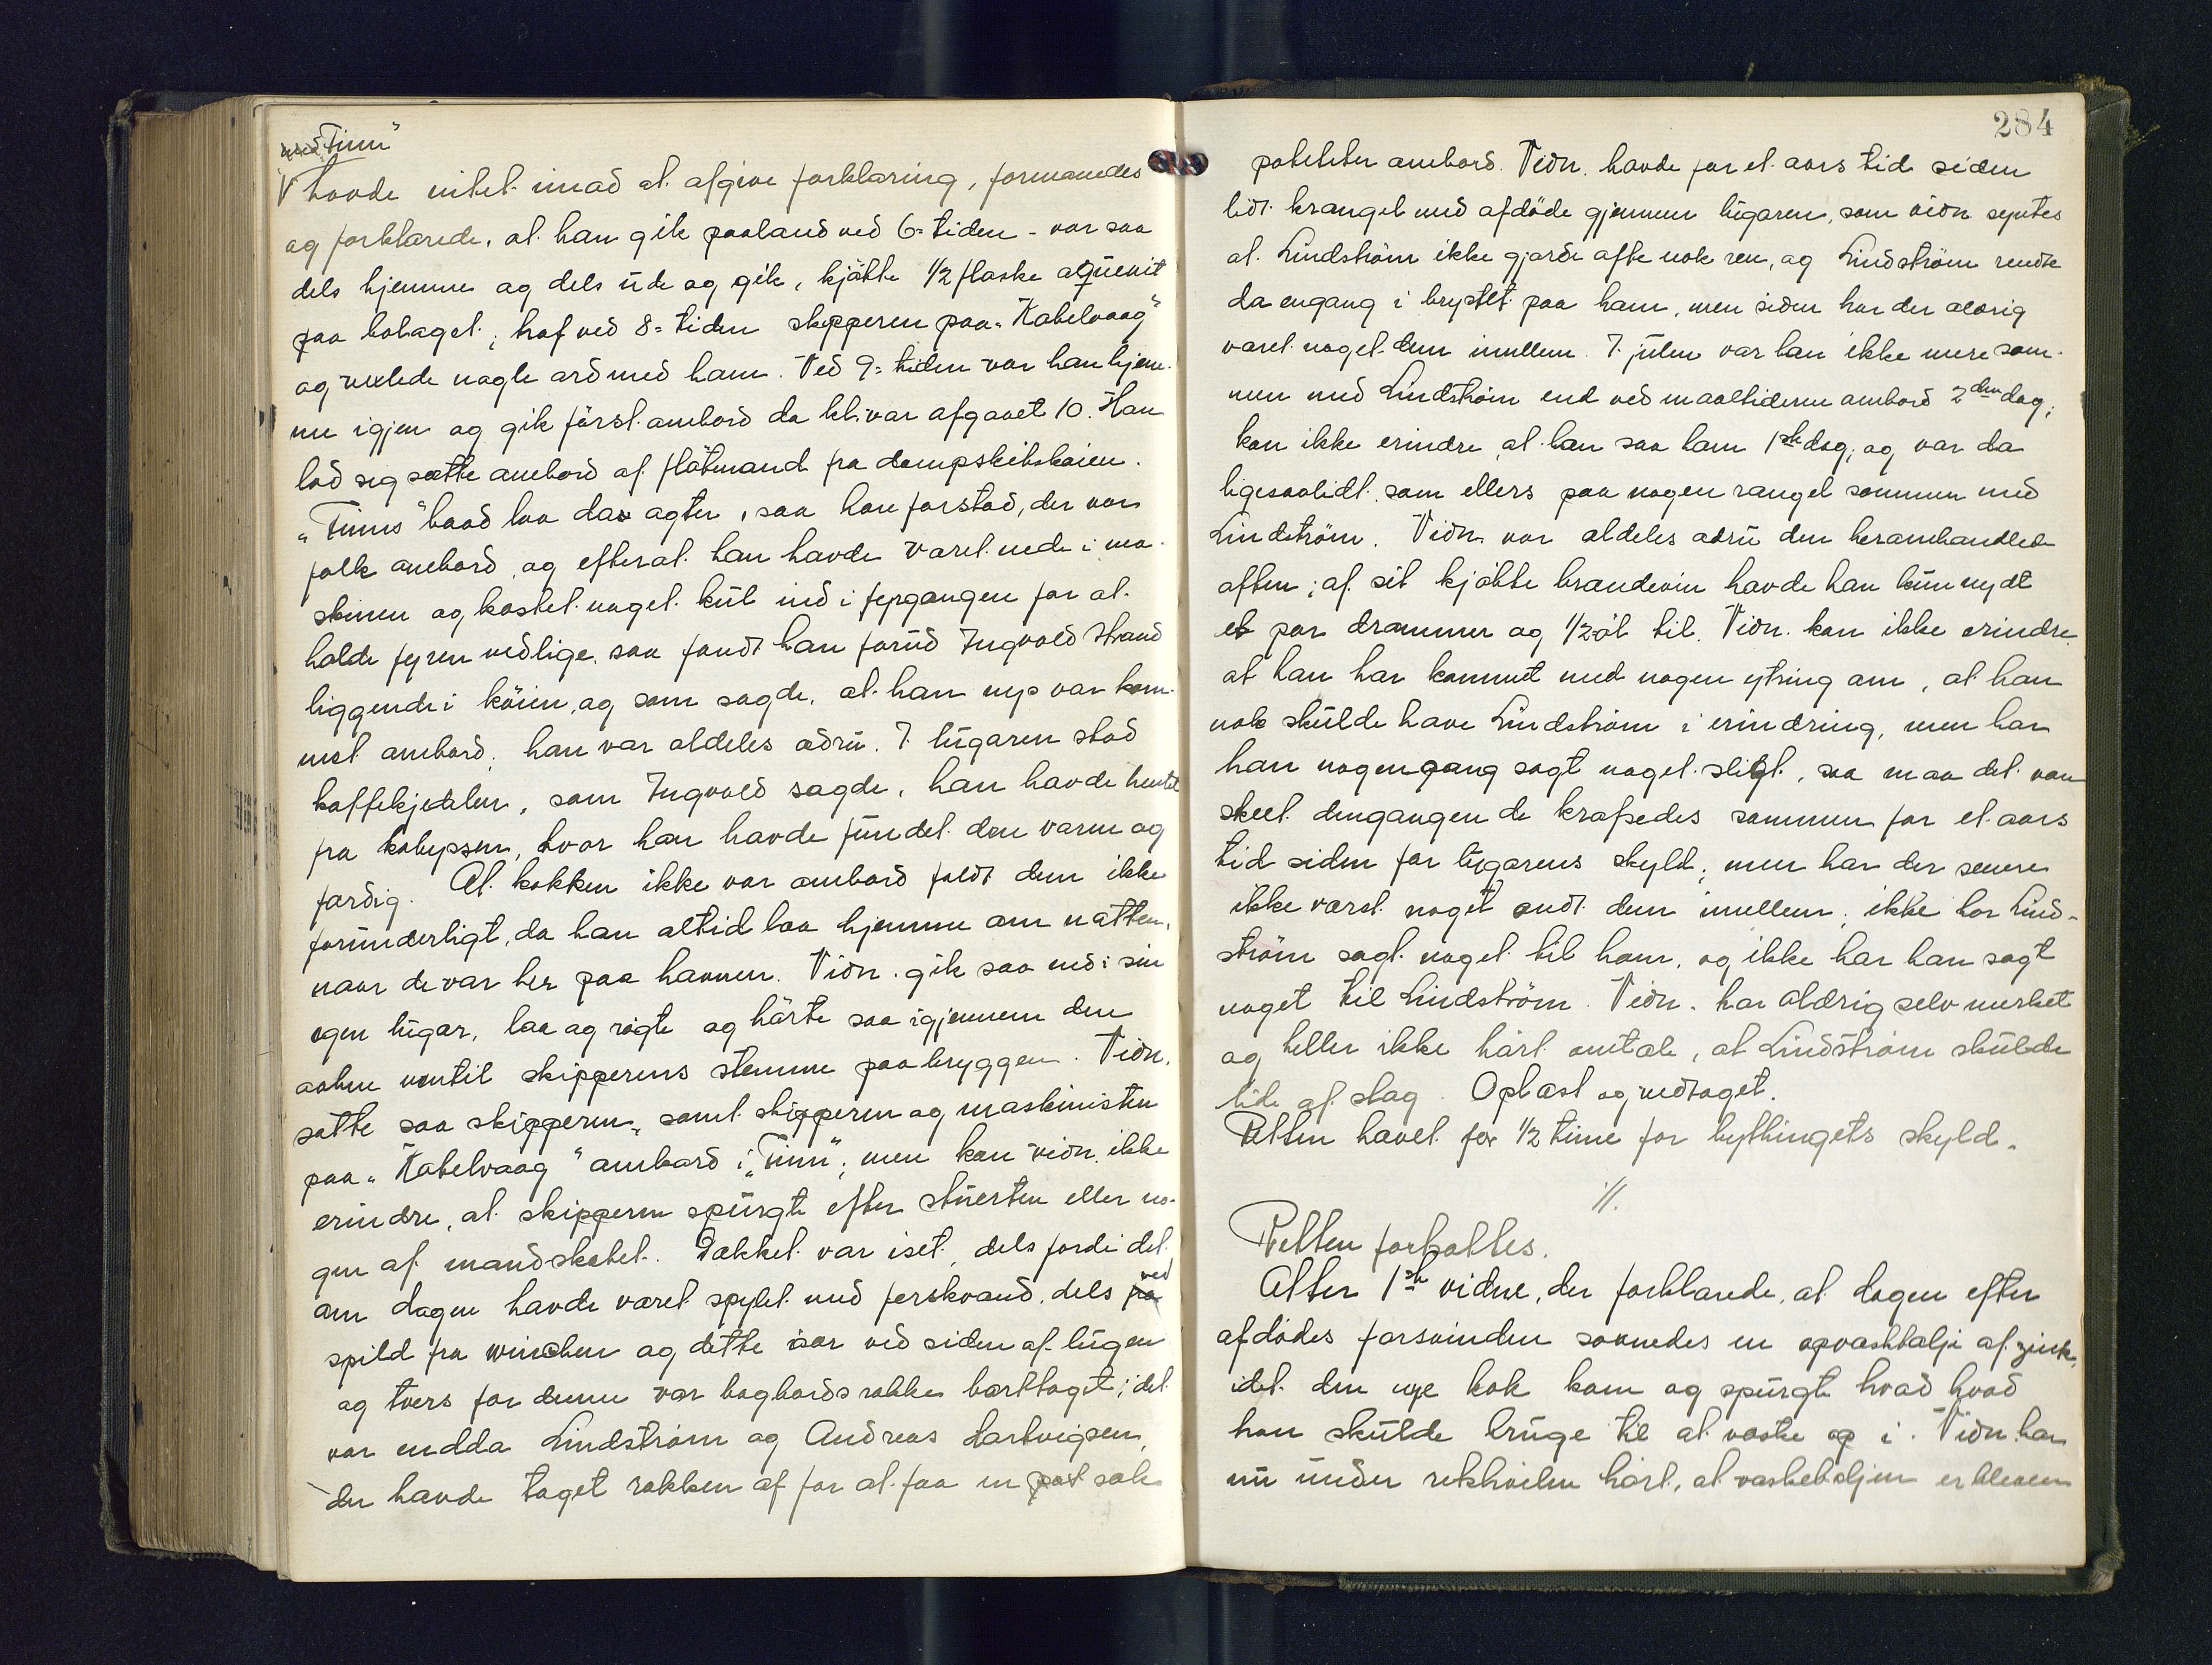 med "Finn"
havde intet imod at afgive forklaring, formanedes
og forklarede, at han gik paaland ved 6-tiden - var saa
dels hjemme og dels ude og gik, kjøbte 1/2 flaske aqvevit
paa bolaget; traf ved 8-tiden skipperen paa "Kabelvaag"
og vexlede nogle ord med ham. Ved 9-tiden var han hjem-
me igjen og gik først ombord da kl. var afgaaet 10. Han
lod sig sætte ombord af fløtmand fra dampskibskaien.
"Finns" baad laa da agter, saa han forstod, der var
folk ombord, og efterat han havde været nede i ma-
skinen og kastet noget kul ind i fyrgangen for at
holde fyren vedlige, saa fandt han forud Ingvald Strand
liggende i køien, og som sagde, at han nys var kom-
met ombord; han var aldeles ædru. I lugaren stod
kaffekjedelen, som Ingvald sagde, han havde hentet
fra kabyssen, hvor han havde fundet den varm og
færdig. At kokken ikke var ombord faldt dem ikke
forunderligt, da han altid laa hjemme om natten,
naar de var her paa havnen. Vidn. gik saa ned i sin
egen lugar, laa og røgte og hørte saa igjennem den
aabne ventil skipperens stemme paa bryggen. Vidn.
satte saa skipperen, samt skipperen og maskinisten
paa "Kabelvaag" ombord i "Finn"; men kan vidn. ikke
erindre, at skipperen spurgte efter stuerten eller no-
gen af mandskabet. Dækket var iset, dels fordi det
om dagen havde været spylet med ferskvand, dels ved
spild fra winchen og dette især ved siden af lugen
og tvers for denne var bagbords række borttaget; det
var endda Lindstrøm og Andreas Hartvigsen,
der havde taget rækken af for at faa en post salt
284
poteteter ombord. Vidn. havde for et aars tid siden
lidt krangel med afdøde gjennem lugaren, som vidn syntes
at Lindstrøm ikke gjorde ofte nok ren, og Lindstrøm rendte
da engang i brystet paa ham, men siden har der aldrig
været noget dem imellem. I julen var han ikke mere sam-
men med Lindstrøm end ved maaltiderne ombord 2den dag;
kan ikke erindre, at han saa ham 1ste dag, og var da
ligesaalidt som ellers paa nogen rangel sammen med
Lindstrøm. Vidn. var aldeles ædru den heromhandlede
aften; af sit kjøbte brændevin havde han kun nydt
et par drammer og 1/2 øl til. Vidn. kan ikke erindre
at han har kommet med nogen ytring om, at han
nok skulde have Lindstrøm i erindring, men har
han nogengang sagt noget sligt, saa maa det være
skeet dengangen de kræfsedes sammen for et aars
tid siden for lugarens skyld; men har der senere
ikke været noget ondt dem imellem; ikke har Lind-
strøm sagt noget til ham, og ikke har han sagt
noget til Lindstrøm. Vidn. har aldrig selv merket
og heller ikke hørt omtale, at Lindstrøm skulde
lide af slag. Oplæst og vedtaget.
Retten hævet for 1/2 time for bythingets skyld.
//.
Retten fortsattes.
Atter 1ste vidne, der forklarede, at dagen efter
afdødes forsvinden savnedes en opvaskbalje af zink,
idet den nye kok kom og spurgte hvad hvad
han skulde bruge til at vaske op i. Vidn. har
nu under rekhvilen hørt, at vaskebaljen er bleven